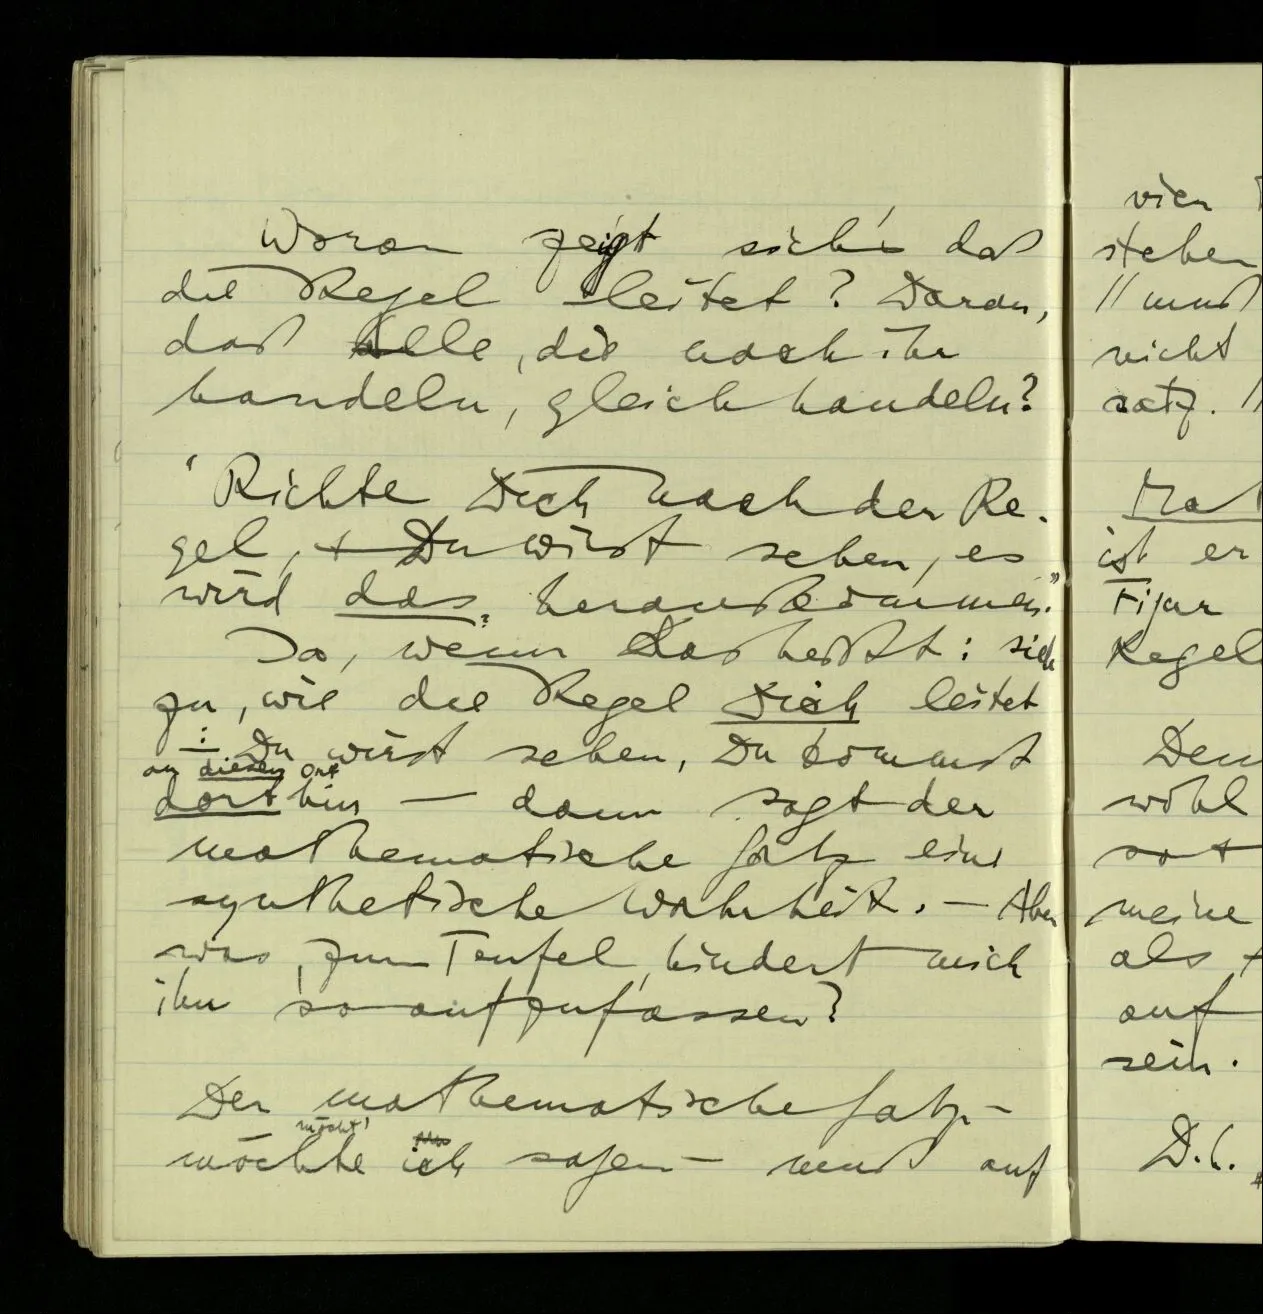 Woran zeigt sich's daß
die Regel leitet? Daran,
daß Alle, die nach ihr
handeln, gleich handeln?
'Richte Dich nach der Re-
gel, + Du wirst sehen, es
wird das herauskommen."
Ja, wenn das heißt: sieh
zu, wie die Regel Dich leitet
: Du wirst sehen, Du kommst
an diesen Ort
dorthin — dann sagt der
mathematische Satz eine
synthetische Wahrheit. — Aber
was, zum Teufel, hindert mich
ihn so aufzufassen?
Der mathematische Satz –
möcht'
möchte ich sagen – muß auf
vier
stehen
// muß
nicht
satz. //
ist er
Figur
Regel
Den
wohl
meine
als
auf
sein.
D.h.